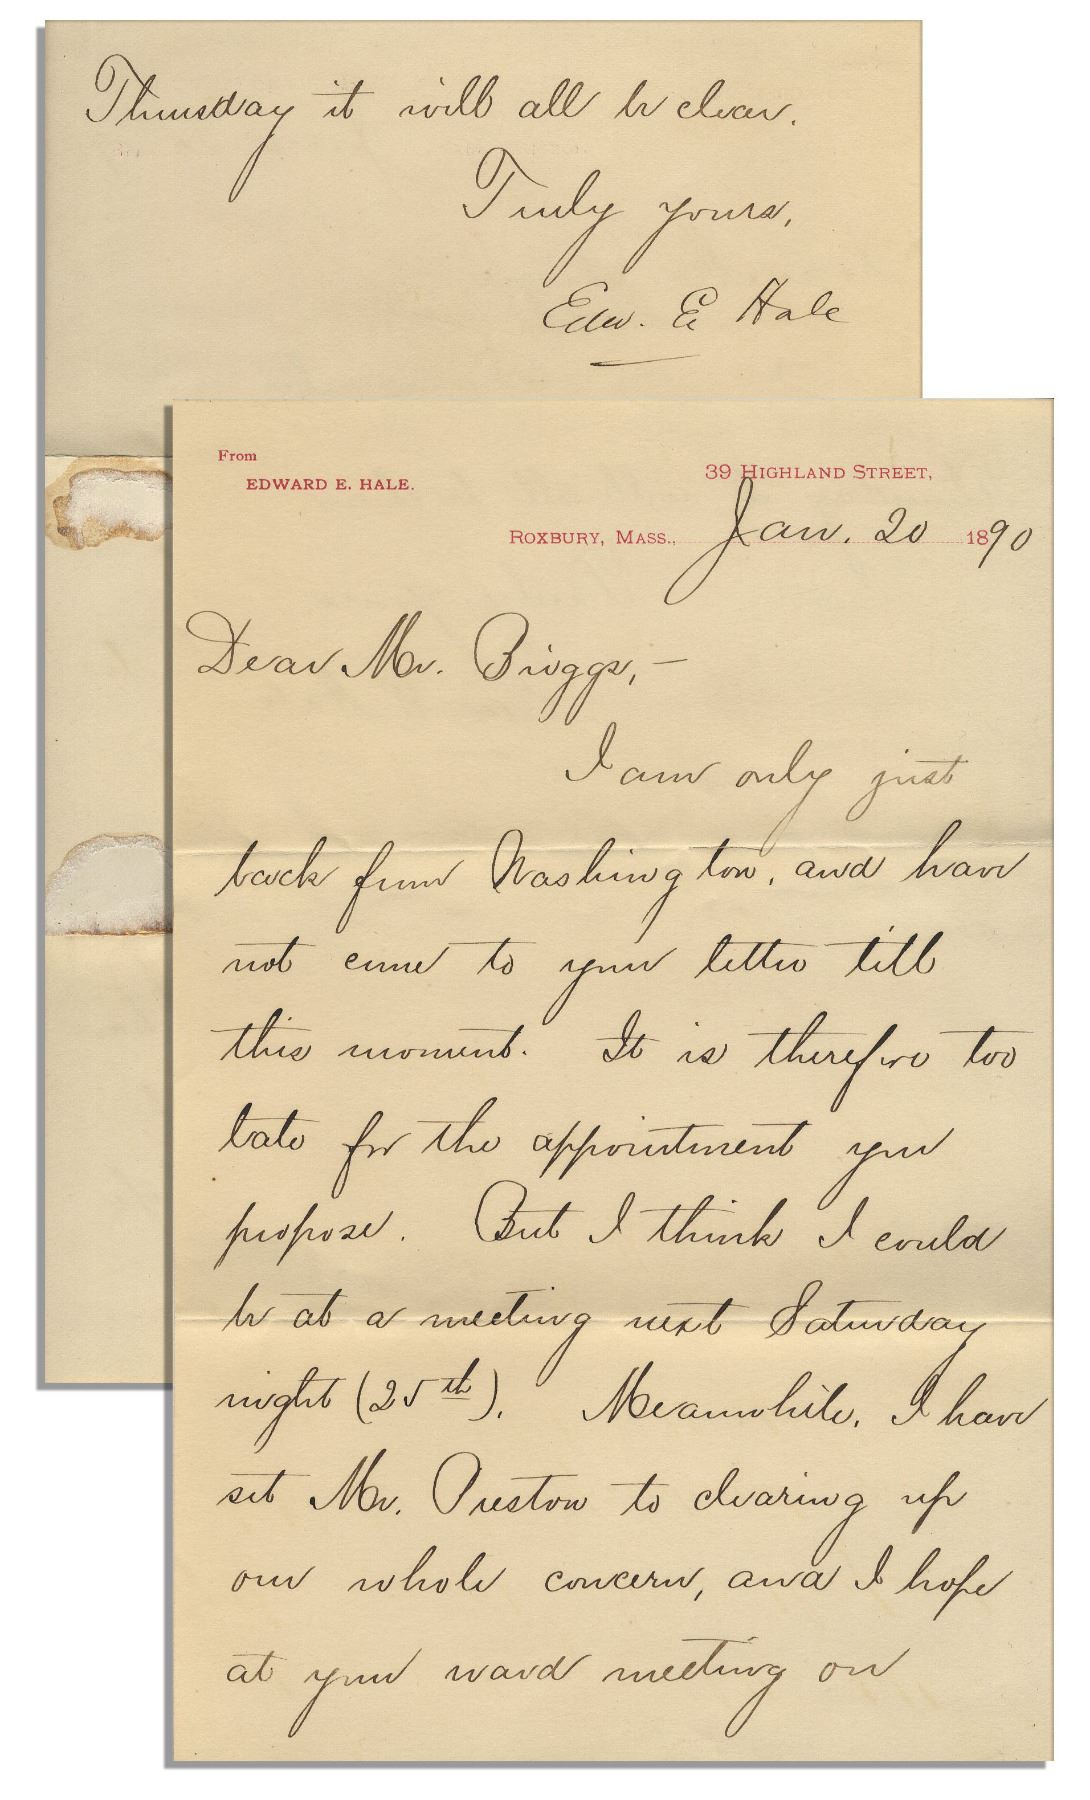 From
EDWARD E. HALE.
39 HIGHLAND STREET,
ROXBURY, MASS., Jan. 20 1890
Dear Mr. Briggs, –
I am only just
back from Washington, and have
not come to your letter till
this moment. It is therefore too
late for the appointment you
propose. But I think I could
be at a meeting next Saturday
night (25th). Meanwhile, I have
set Mr. Preston to clearing up
our whole concern, and I hope
at your ward meeting on
Thursday it will all be clear.
Truly yours,
Edw. E Hale